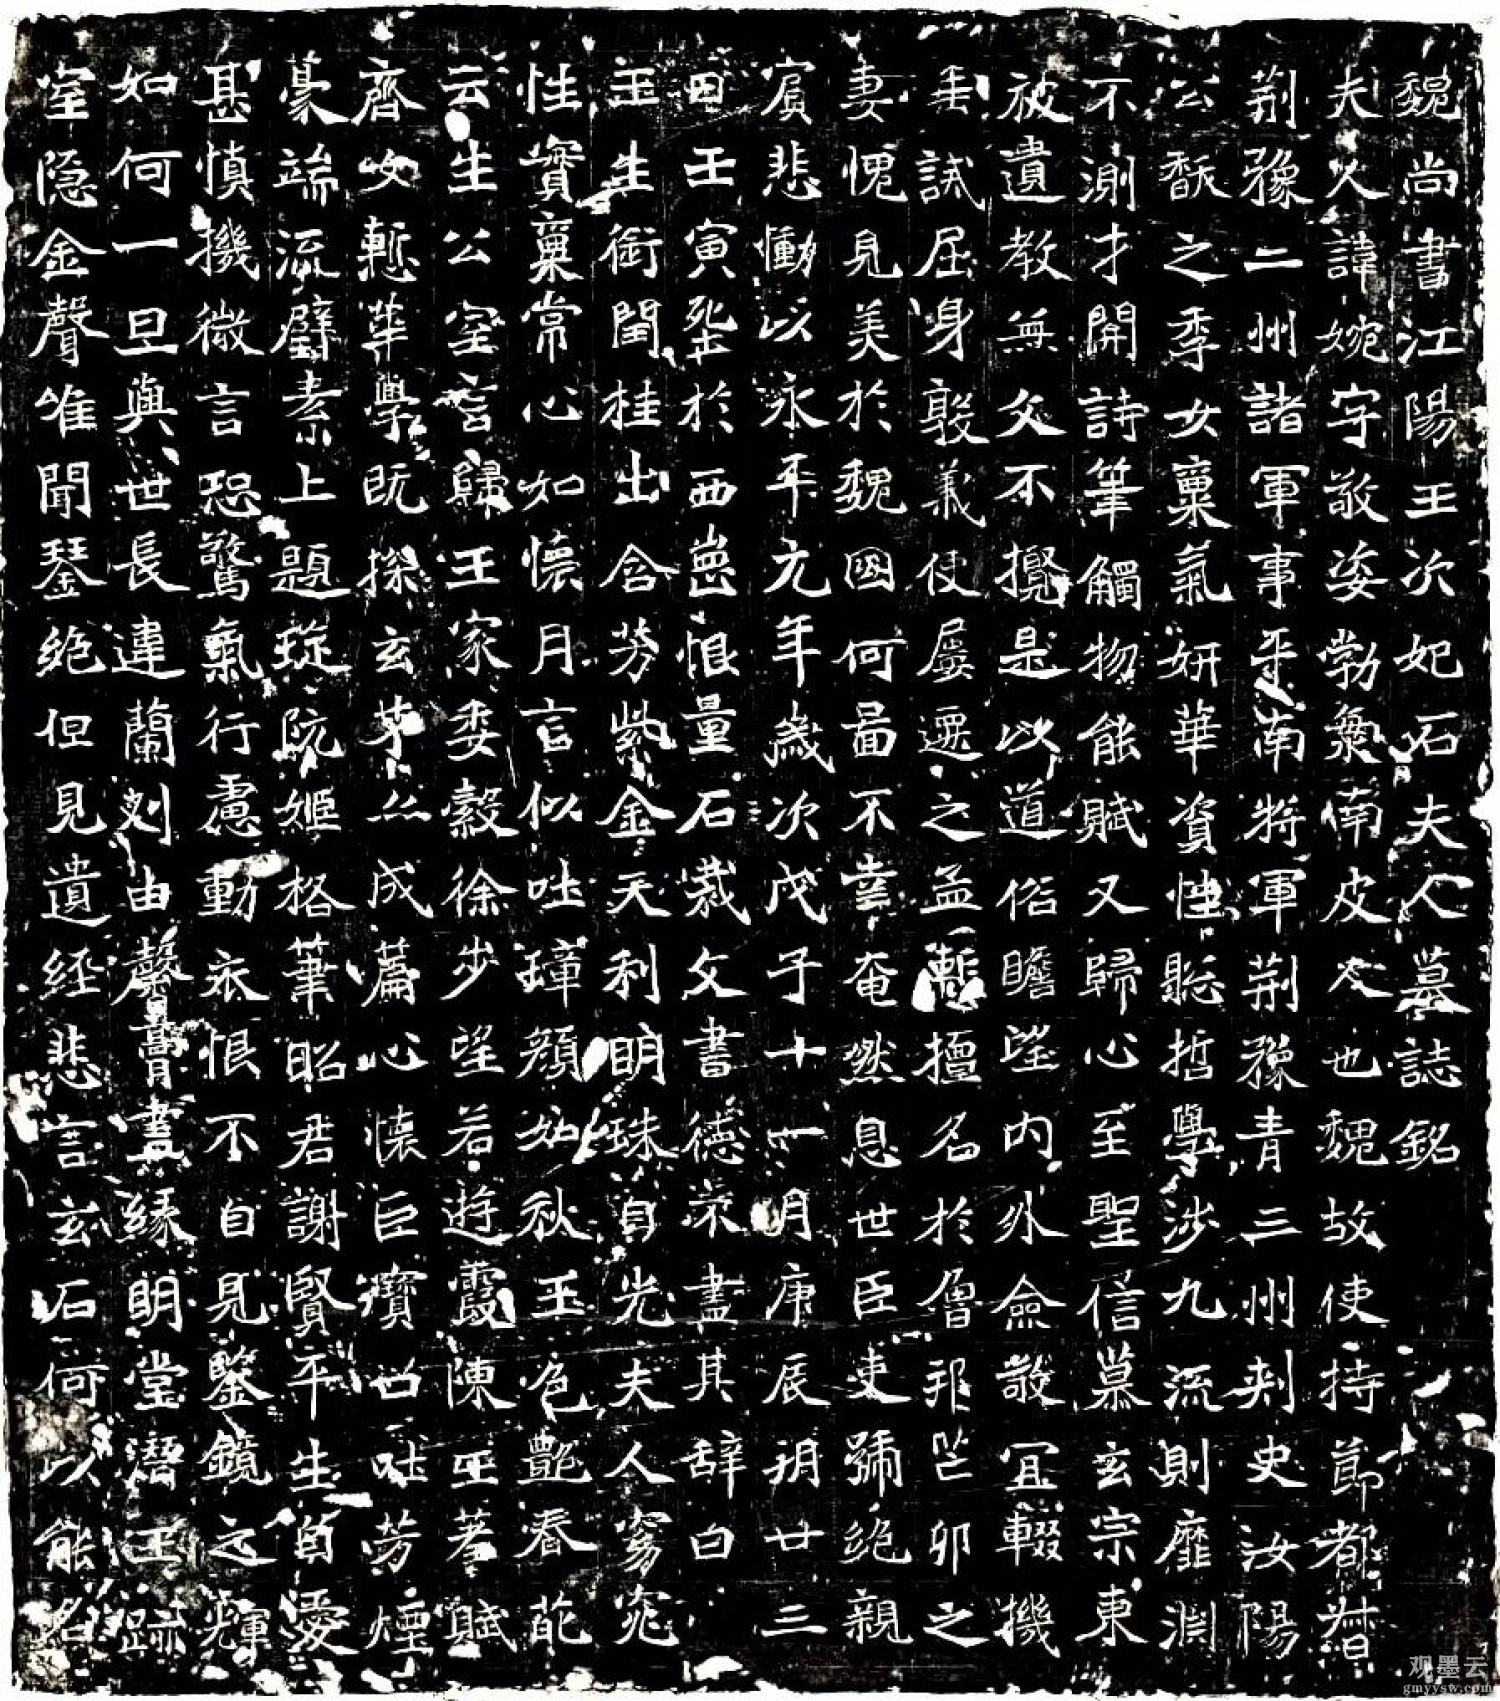 魏尚書江陽王次妃石夫人墓誌銘
夫人諱婉字敬姿勃海南皮人也魏故使持節都督
荊豫二州諸軍事平南將軍荊豫青三州刾史汝陽
公馛之季女稟氣妍華資性聡哲學涉九流則靡淵
不測才開詩筆觸物能賦又歸心至聖信慕玄宗東
被遺教無文不攬是以道俗瞻望內外僉敬冝輟機
垂試屈身敦義使屡遷之孟慙擅名於魯邦芒卯之
妻愧見美於魏國何啚不幸奄然息世臣吏號絶親
賓悲慟以永平元年歲次戊子十一月庚辰朔廿三
日壬寅塟於西崗恨量石裁文書德不盡其辞曰
玉生銜閏桂出含芳紫金天利明珠自光夫人窈窕
性實稟常心如懷月言似吐璋顏幼秋玉色艷春葩
云生公室言歸王家委縠徐步望若遊霞陳王羞賦
齊女慙華學既探玄才亦成篇心懷巨寶口吐芳煙
豪端流璧素上題琁阮姬格筆昭君謝賢平生自愛
甚慎機微言恐驚氣行慮動衣恨不自見鑒鏡之輝
如何一旦與世長違蘭刈由馨膏盡緣明堂潛玉跡
室隱金聲唯聞琴絶但見遺經悲言玄石何以能名
观墨云
gmyysw.com